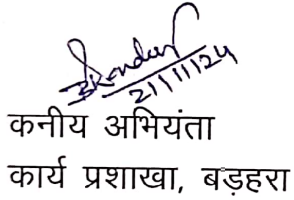 21/11/24
कनीय अभियंता
कार्य प्रशाखा, बड़हरा